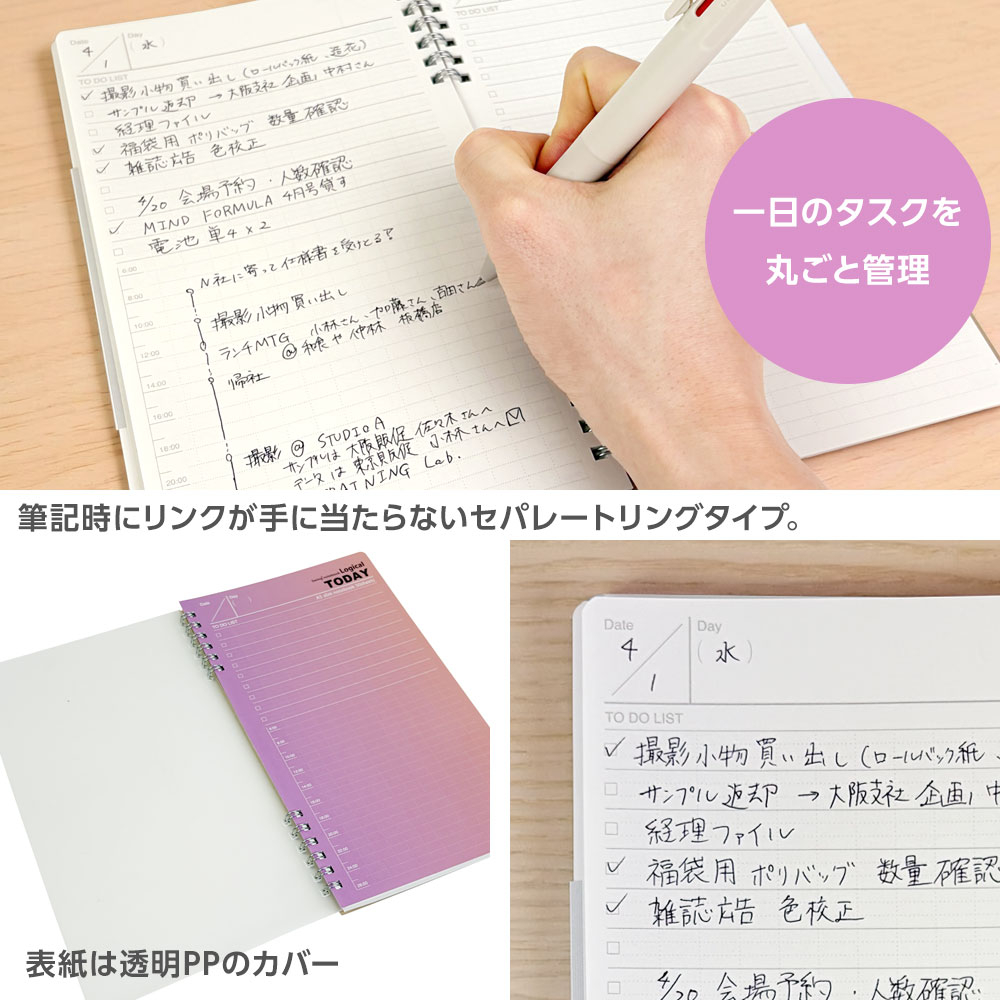 Date
4/1
Day
(水)
TO DO LIST
✓ 撮影小物買い出し(ロールバック紙、造花)
サンプル返却 →大阪支社 企画 中村さん
経理ファイル
✓ 福袋用 ポリバッグ 数量確認
✓ 雑誌広告 色校正
4/20 会場予約・人数確認
✓ MIND FORMULA 4月号貸す
電池 単4×2
6:00
8:00
10:00
12:00
14:00
16:00
18:00
20:00
N社に寄って仕様書を受けとる?
撮影小物買い出し
ランチMTG 小林さん、加藤さん、百田さん
@ 和食や 仲林 板橋店
帰社
撮影 @ STUDIO A
サンプルは大阪販促 佐々木さんへ
データは東京販促 小林さんへ
TRAINING Lab.
一日のタスクを
丸ごと管理
筆記時にリンクが手に当たらないセパレートリングタイプ。
Logical
TODAY
Date
Day
TO DO LIST
表紙は透明PPのカバー
Date
4/1
Day
(水)
TO DO LIST
✓ 撮影小物買い出し(ロールバック紙、
サンプル返却 →大阪支社 企画 中
経理ファイル
✓ 福袋用 ポリバッグ 数量確認
✓ 雑誌広告 色校正
4/20 会場予約・人数確認